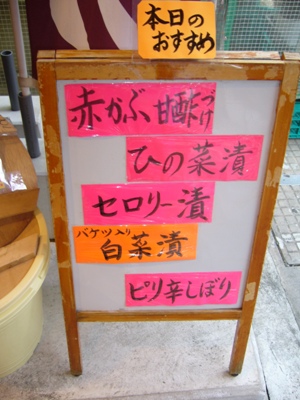 本日の
おすすめ
赤かぶ甘酢つけ
ひの菜漬
セロリー漬
バケツ入り
白菜漬
ピリ辛しぼり